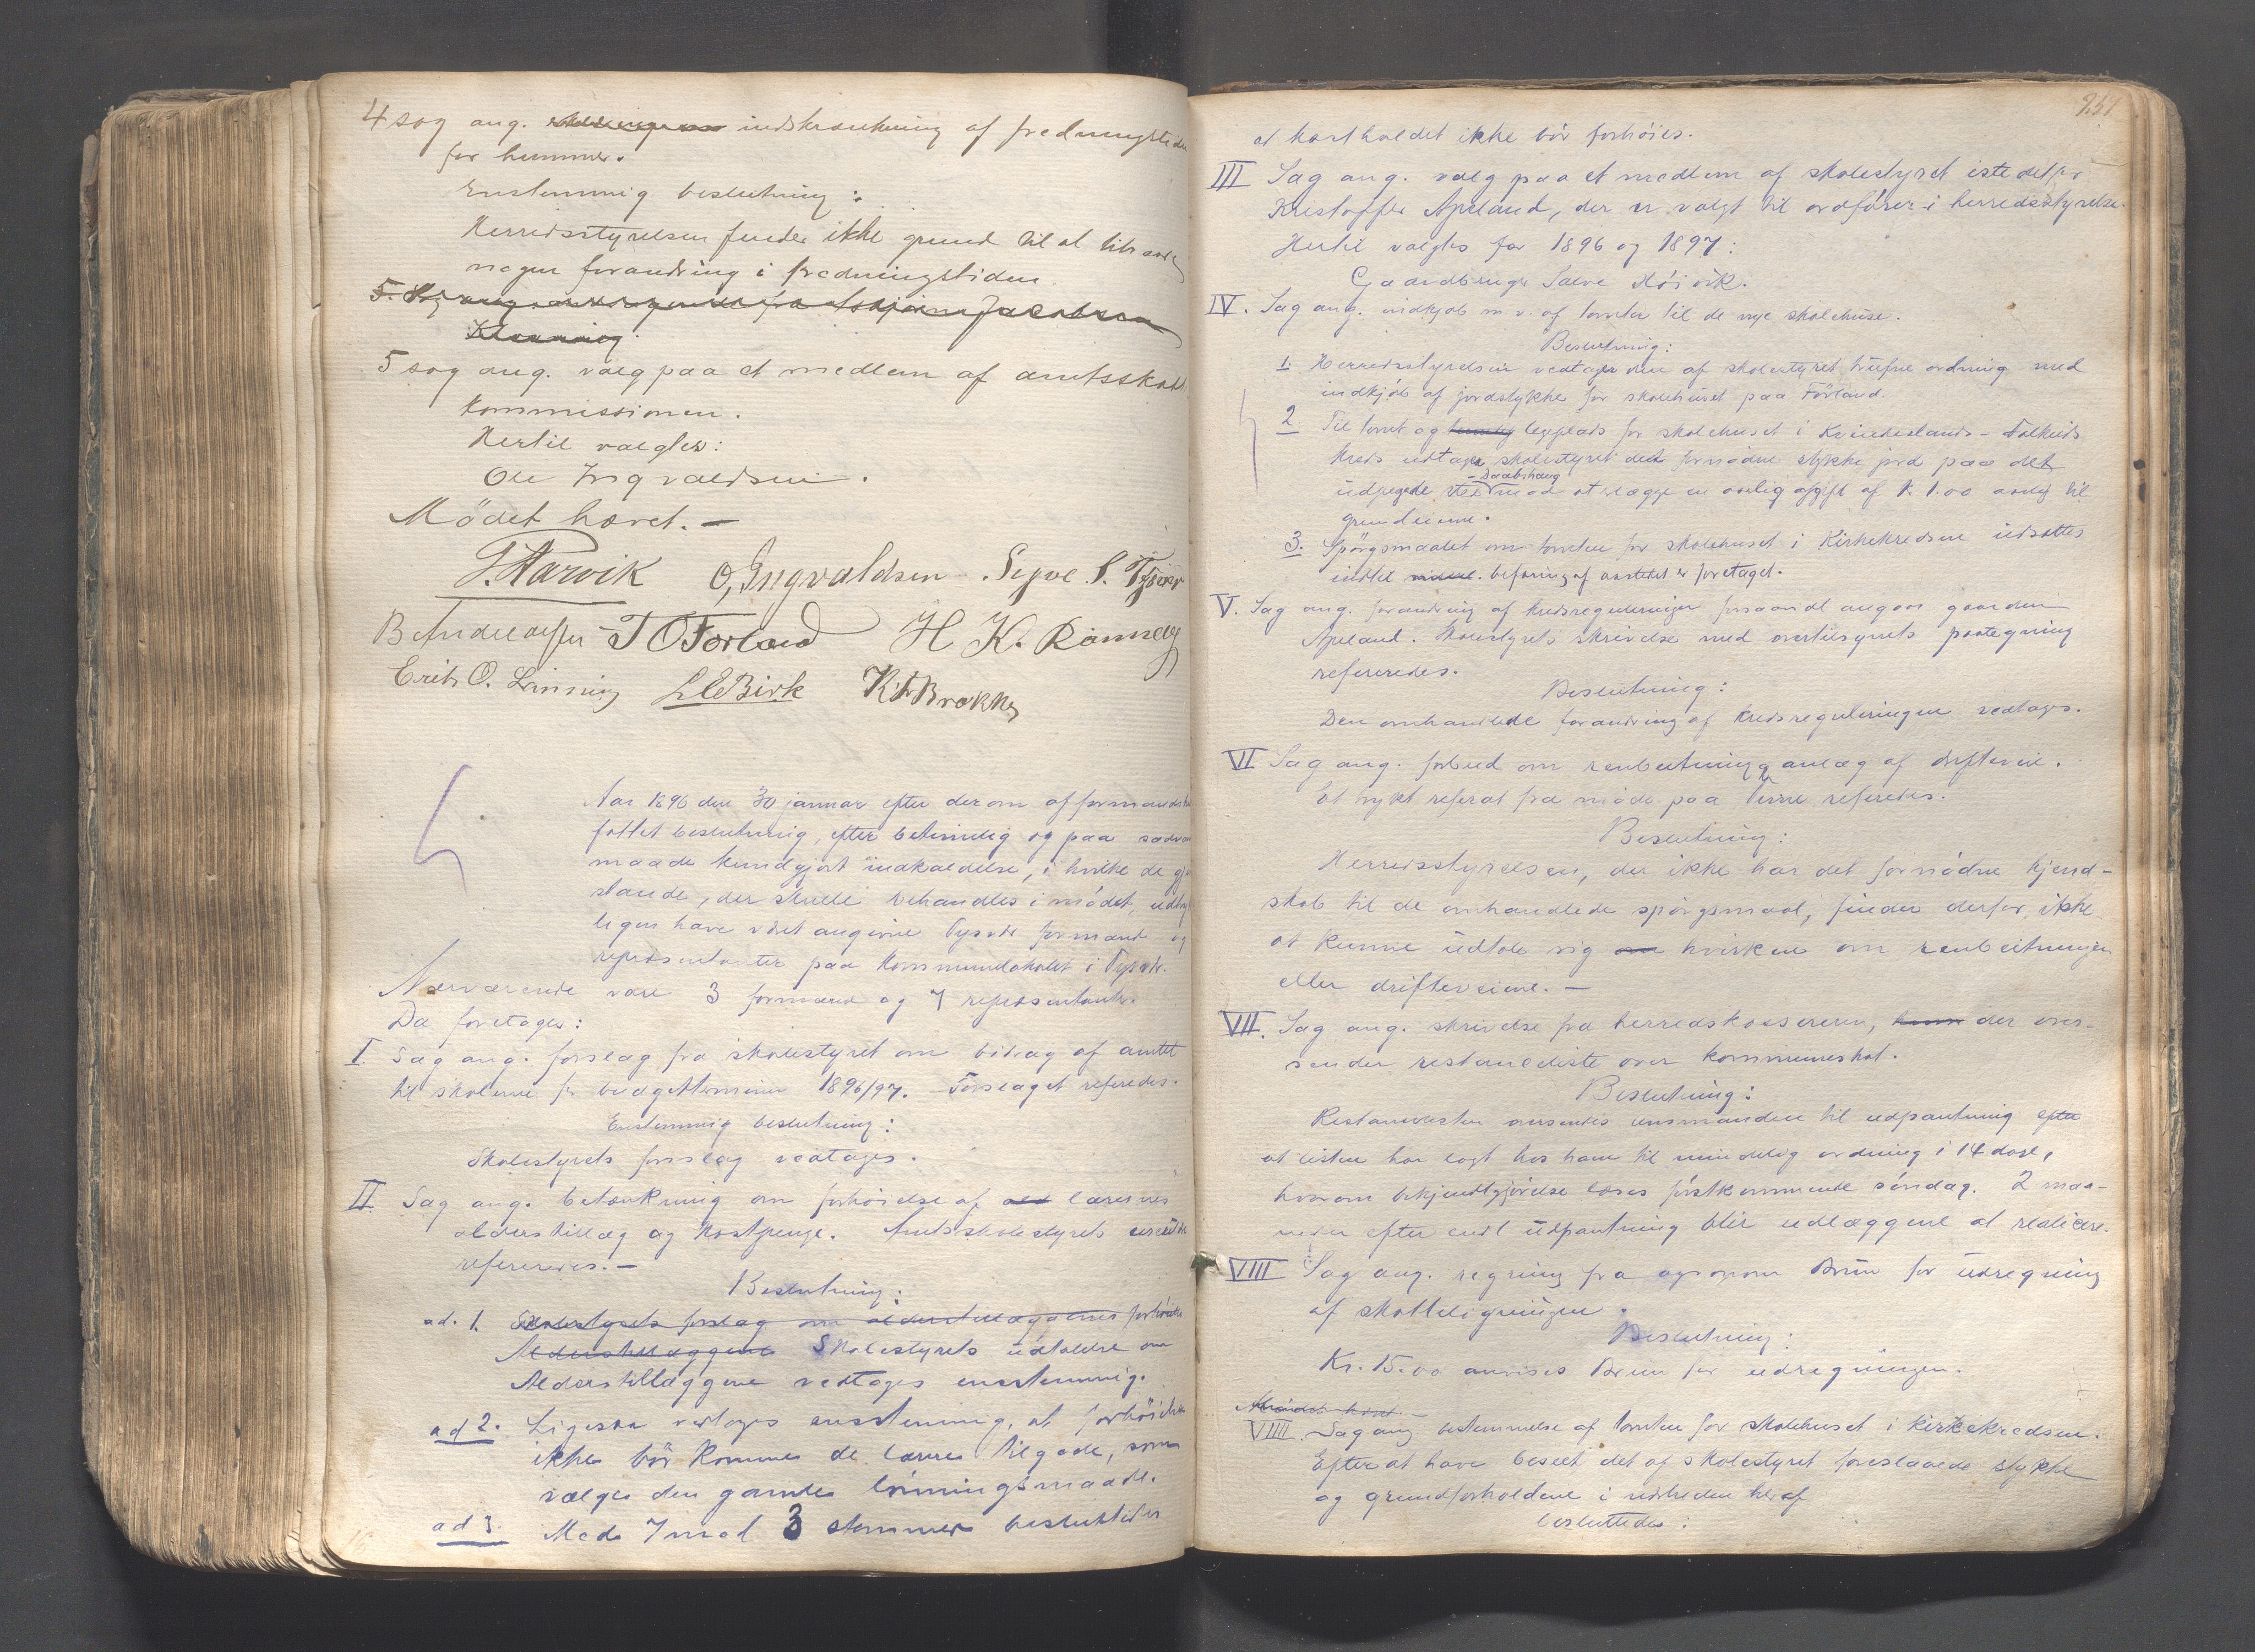 4 sag ang. indskrænkning af fredningstiden
for hummer.
Enstemmig beslutning:
Herredsstyrelsen finder ikke grund til at tilraade
nogen forandring i fredningstiden
5 sag ang. valg paa et medlem af amtsskatte
kommissionen.
Hertil valgtes:
Ole Ingvaldsen.
Mödet hævet. —
O, Ingvaldsen Sigve S. Tysvær
T O Førland H K.
Erik O. LEBirk
Aar 1896 den 30 januar efter derom af formandska
fattet beslutning, efter betimelig og paa sædva
maade kundgjort indkaldelse, i hvilke de gjen
stande, der skulle behandles i mödet, udtryk
ligen have været angivne Tysvær formænd og
repræsentanter paa kommunelokalet i Tysvær.
Nærværende vare 3 formænd og 7 repræsentanter.
Da foretoges:
I. Sag ang. forslag fra skolestyret om bidrag af amtet
til skolerne for budgetterminen 1896/97. Forslaget referedes.
Enstemmig beslutning:
Skolestyrets forslag vedtages.
II. Sag ang. betænkning om forhöielse af lærernes
alderstillæg og kostpenge. Amtsskolestyrets
refereredes. —
Beslutning:
ad. 1. Skolestyrets forslag om alderstillæggenes forhöielse
Alderstillæggene Skolestyrets udtalelse om
Alderstillæggene vedtages enstemmig.
ad 2. Ligesaa vedtages enstemmig, at forhöielsen
ikke bör komme de lærere tilgode, som
vælger den gamle lönningsmaade.
ad 3. Med 7 mod 3 stemmer besluttedes
251
at kostholdet ikke bör forhöies.
III Sag ang. valg paa et medlem af skolestyret istedetfor
Kristoffer Apeland, der er valgt til ordförer i herredsstyrelse.
Hertil valgtes for 1896 og 1897:
Gaardbruger Salve
IV. Sag ang. indkjöb m. v. af tomter til de nye skolehuse.
Beslutning:
1. Herredsstyrelsen vedtager den af skolestyret trufne ordning med
indkjöb af jordstykke for skolehuset paa Förland.
2 Til tomt og legeplads for skolehuset i
kreds udtager skolestyret det fornödne stykke jord paa det
udpegede sted mod at erlægge en aarlig afgift af K. 1.00 aarlig til
grundeierne.
3. Spörgsmaalet om tomten for skolehuset i Kirkekredsen udsættes
indtil befaring af aastedet er foretaget.
V. Sag ang. forandring af kredsreguleringen forsaavidt angaar gaarden
Apeland. Skolestyrets skrivelse med overtilsynets paategning
refereredes.
Beslutning:
Den omhandlede forandring af kredsreguleringen vedtages.
VI Sag ang. forbud om renbeitning & anlæg af drifteveie.
Et trykt referat fra möde paa referedes.
Beslutning:
Herredsstyrelsen, der ikke har det fornödne kjend-
skab til de omhandlede spörgsmaal, finder derfor ikke
at kunne udtale sig hverken om renbeitningen
eller drifteveiene. —
VII. Sag ang. skrivelse fra herredskassereren, der over-
sender restanceliste over kommuneskat.
Beslutning:
Restancelisten oversendes lensmanden til udpantning efter
at listen har lagt hos ham til mindelig ordning i 14 dage,
hvorom bekjendtgjörelse læses förstkommende söndag. 2 maa-
neder efter endt udpantning blir udlæggene at realisere.
VIII Sag ang. regning fra Brun for udregning
af skatteligningen.
Beslutning:
Kr. 15.00 anvises Brun for udregningen.
Mödet hævet. —
VIIII. Sag ang bestemmelse af tomten for skolehuset i kirkekredsen.
Efter at have beseet det af skolestyret foreslaaede stykke
og grundforholdene i nærheden heraf
besluttedes: